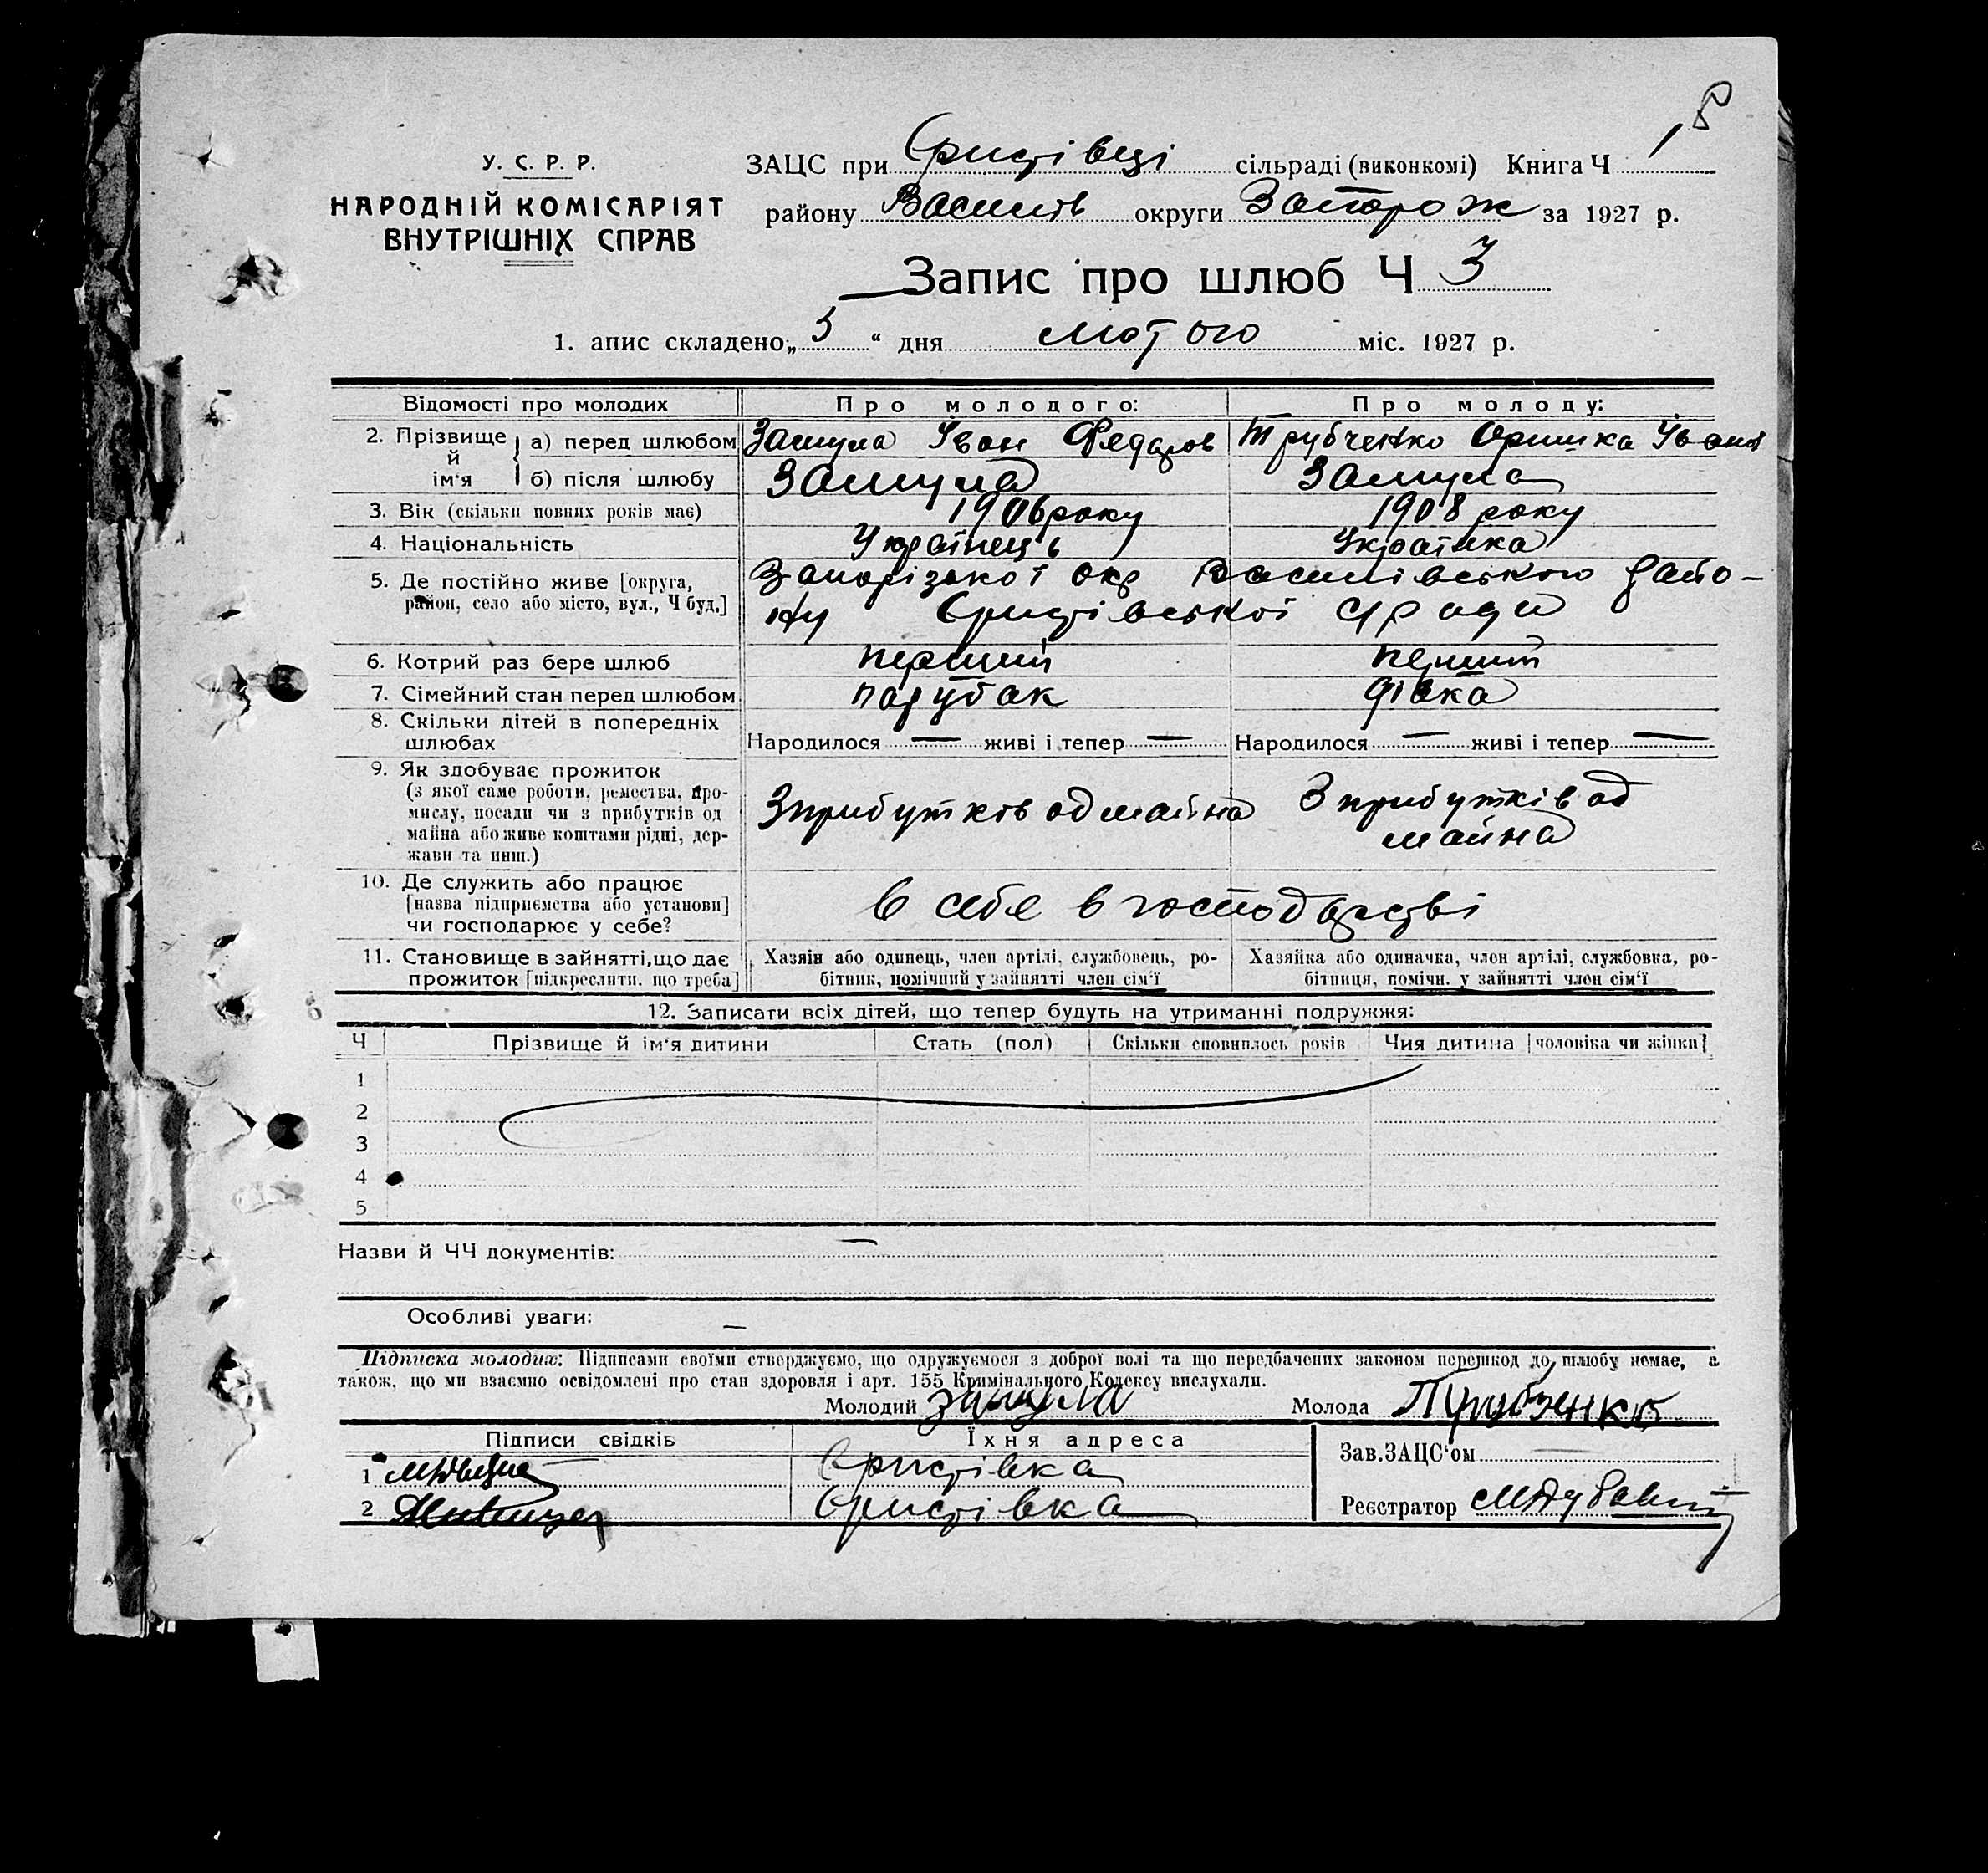 8
У. С. Р. Р.
НАРОДНІЙ КОМІСАРІЯТ
ВНУТРІШНІХ СПРАВ
ЗАЦС при Єристівці сільраді (виконкомі) Книга Ч 1
району Василів округи Запорож за 1927 р.
Запис про шлюб Ч 3
1. апис складено „5“ дня лютого міс. 1927 р.
Відомості про молодих Про молодого: Про молоду:
2. Прізвище й ім'я а) перед шлюбом Замула Іван Федоров Трубченко Оришка Іванов
б) після шлюбу Замула Замула
3. Вік (скільки повних років має) 1906 року 1908 року
4. Національність Українець Українка
5. Де постійно живе [округа, Запорізької окр Василівського райо-
район, село або місто, вул., Ч буд.] ну Єристівської с/ради
6. Котрий раз бере шлюб перший перший
7. Сімейний стан перед шлюбом парубак дівка
8. Скільки дітей в попередніх
шлюбах Народилося — живі і тепер — Народилося — живі і тепер —
9. Як здобуває прожиток
(з якої саме роботи, ремества, про-
мислу, посади чи з прибутків од
майна або живе коштами рідні, дер-
жави та инш.)
З прибутков од майна З прибутків од
майна
10. Де служить або працює
[назва підприємства або установи]
чи господарює у себе?
в себе в господарстві
11. Становище в зайнятті, що дає
прожиток [підкреслити, що треба]
Хазяїн або одинець, член артілі, службовець, ро-
бітник, помічний у зайнятті член сім'ї
Хазяйка або одиначка, член артілі, службовка, ро-
бітниця, помічн. у зайнятті член сім'ї
12. Записати всіх дітей, що тепер будуть на утриманні подружжя:
Ч Прізвище й ім'я дитини Стать (пол) Скільки сповнилось років Чия дитина [чоловіка чи жінки]
1
2
3
4
5
Назви й ЧЧ документів: —
Особливі уваги: —
Підписка молодих: Підписами своїми стверджуємо, що одружуємося з доброї волі та що передбачених законом перешкод до шлюбу немає, а
також, що ми взаємно освідомлені про стан здоровля і арт. 155 Кримінального Кодексу вислухали.
Молодий Замула Молода Трубченко
Підписи свідків Їхня адреса
Зав. ЗАЦС'ом
1 Єристівка
2 Єристівка
Реєстратор